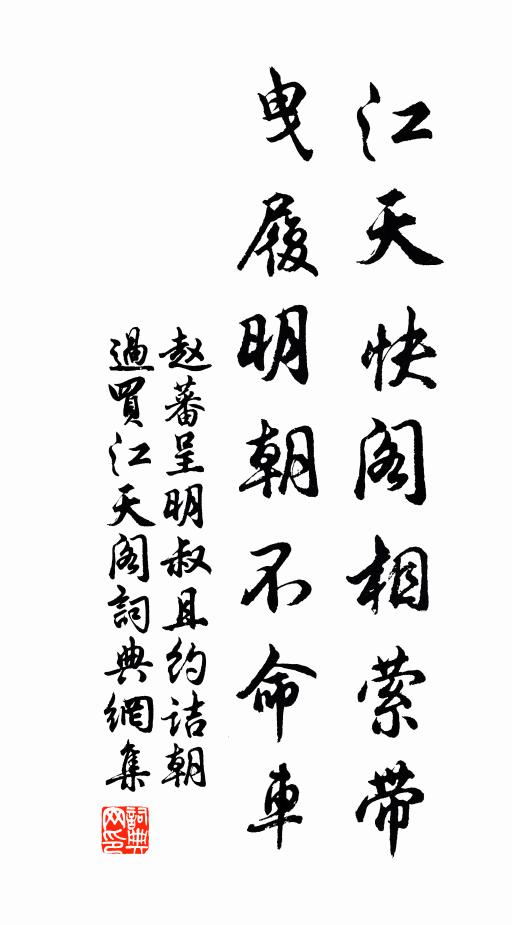 江天快阁相萦带
曳履明朝不命車
赵蕃呈明叔且约诘朝
過買江天阁詞典網集
詞典
网印